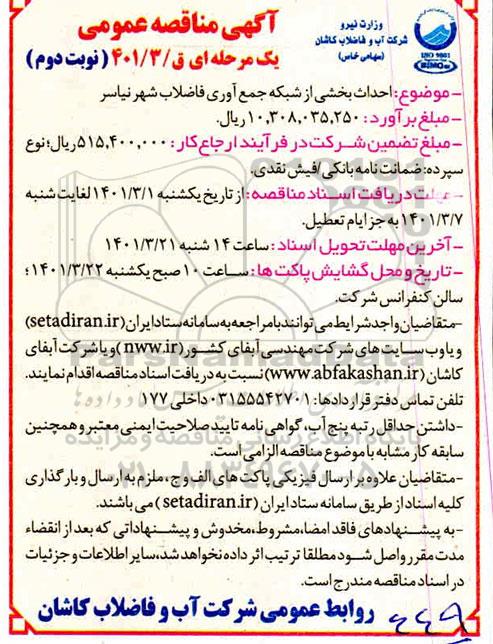 وزارت نیرو
شرکت آب و فاضلاب کاشان
(سهامی خاص)
ISO 9001
آگهی مناقصه عمومی
یک مرحله ای ق/۴۰۱/۳ (نوبت دوم)
-موضوع: احداث بخشی از شبکه جمع آوری فاضلاب شهر نیاسر
-مبلغ برآورد: ۱۰,۳۰۸,۰۳۵,۲۵۰ ریال.
-مبلغ تضمین شرکت در فرآیند ارجاع کار: ۵۱۵,۴۰۰,۰۰۰ریال؛ نوع
سپرده: ضمانت نامه بانکی/فیش نقدی.
-مهلت دریافت اسناد مناقصه: از تاریخ یکشنبه ۱۴۰۱/۳/۱ لغایت شنبه
۱۴۰۱/۳/۷ به جز ایام تعطیل.
-آخرین مهلت تحویل اسناد: ساعت ۱۴ شنبه ۱۴۰۱/۳/۲۱
-تاریخ و محل گشایش پاکت ها: ساعت ۱۰ صبح یکشنبه ۱۴۰۱/۳/۲۲؛
سالن کنفرانس شرکت.
-متقاضیان واجد شرایط می توانند با مراجعه به سامانه ستاد ایران (setadiran.ir)
و یا وب سایت های شرکت مهندسی آبفای کشور (nww.ir) و یا شرکت آبفای
کاشان (www.abfakashan.ir) نسبت به دریافت اسناد مناقصه اقدام نمایند.
تلفن تماس دفتر قراردادها: ۰۳۱۵۵۵۴۲۷۰۱ داخلی ۱۷۷
-داشتن حداقل رتبه پنج آب، گواهی نامه تایید صلاحیت ایمنی معتبر و همچنین
سابقه کار مشابه با موضوع مناقصه الزامی است.
-متقاضیان علاوه بر ارسال فیزیکی پاکت های الف و ج، ملزم به ارسال و بارگذاری
کلیه اسناد از طریق سامانه ستاد ایران (setadiran.ir) می باشند.
-به پیشنهادهای فاقد امضا، مشروط، مخدوش و پیشنهاداتی که بعد از انقضاء
مدت مقرر واصل شود مطلقا ترتیب اثر داده نخواهد شد، سایر اطلاعات و جزئیات
در اسناد مناقصه مندرج است.
روابط عمومی شرکت آب و فاضلاب کاشان